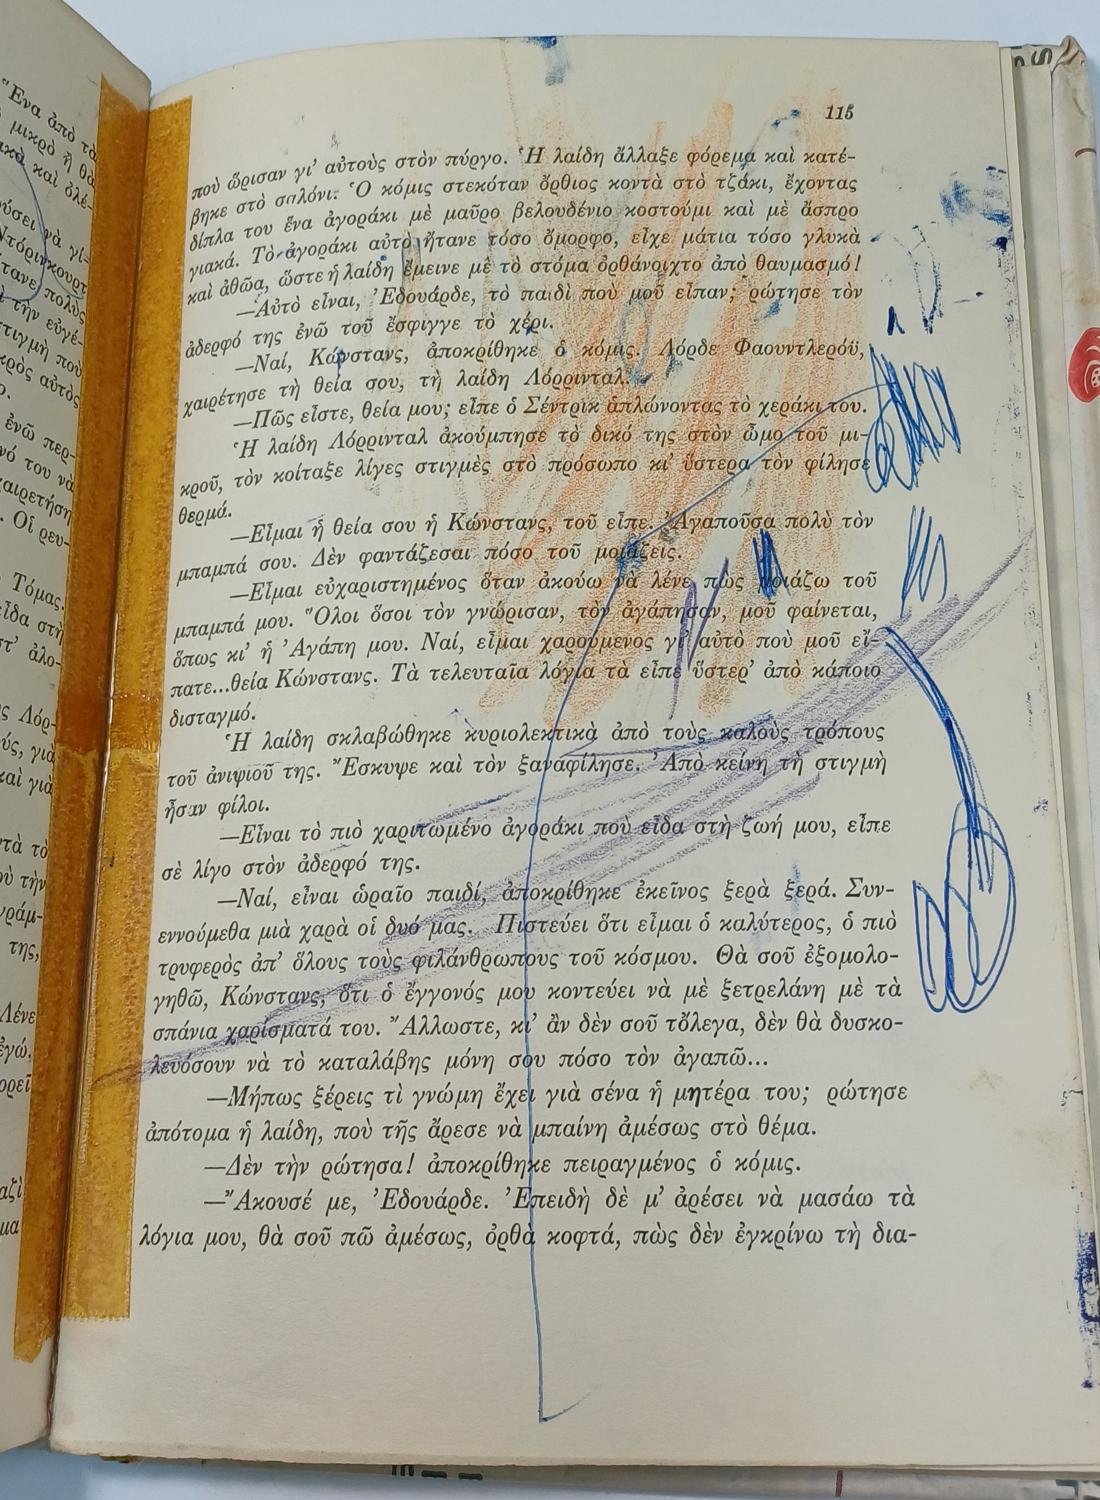 115
ποὺ ὥρισαν γι' αὐτοὺς στὸν πύργο. Ἡ λαίδη ἄλλαξε φόρεμα καὶ κατέ-
βηκε στὸ σαλόνι. Ὁ κόμις στεκόταν ὄρθιος κοντὰ στὸ τζάκι, ἔχοντας
δίπλα του ἕνα ἀγοράκι μὲ μαῦρο βελουδένιο κοστούμι καὶ μὲ ἄσπρο
γιακά. Τὸ ἀγοράκι αὐτὸ ἤτανε τόσο ὄμορφο, εἶχε μάτια τόσο γλυκὰ
καὶ ἀθῶα, ὥστε ἡ λαίδη ἔμεινε μὲ τὸ στόμα ὀρθάνοιχτο ἀπὸ θαυμασμό!
—Αὐτὸ εἶναι, Ἐδουάρδε, τὸ παιδὶ ποὺ μοῦ εἶπαν; ρώτησε τὸν
ἀδερφό της ἐνῶ τοῦ ἔσφιγγε τὸ χέρι.
—Ναί, Κώνστανς, ἀποκρίθηκε ὁ κόμις. Λόρδε Φαουντλερόϋ,
χαιρέτησε τὴ θεία σου, τὴ λαίδη Λόρρινταλ.
—Πῶς εἶστε, θεία μου; εἶπε ὁ Σέντρικ ἁπλώνοντας τὸ χεράκι του.
Ἡ λαίδη Λόρρινταλ ἀκούμπησε τὸ δικό της στὸν ὦμο τοῦ μι-
κροῦ, τὸν κοίταξε λίγες στιγμὲς στὸ πρόσωπο κι' ὕστερα τὸν φίλησε
θερμά.
—Εἶμαι ἡ θεία σου ἡ Κώνστανς, τοῦ εἶπε. Ἀγαποῦσα πολὺ τὸν
μπαμπά σου. Δὲν φαντάζεσαι πόσο τοῦ μοιάζεις.
—Εἶμαι εὐχαριστημένος ὅταν ἀκούω νὰ λένε πὼς μοιάζω τοῦ
μπαμπά μου. Ὅλοι ὅσοι τὸν γνώρισαν, τὸν ἀγάπησαν, μοῦ φαίνεται,
ὅπως κι' ἡ Ἀγάπη μου. Ναί, εἶμαι χαρούμενος γι' αὐτὸ ποὺ μοῦ εἴ-
πατε...θεία Κώνστανς. Τὰ τελευταῖα λόγια τὰ εἶπε ὕστερ' ἀπὸ κάποιο
δισταγμό.
Ἡ λαίδη σκλαβώθηκε κυριολεκτικὰ ἀπὸ τοὺς καλοὺς τρόπους
τοῦ ἀνιψιοῦ της. Ἔσκυψε καὶ τὸν ξαναφίλησε. Ἀπὸ κείνη τὴ στιγμὴ
ἦσαν φίλοι.
—Εἶναι τὸ πιὸ χαριτωμένο ἀγοράκι ποὺ εἶδα στὴ ζωή μου, εἶπε
σὲ λίγο στὸν ἀδερφό της.
—Ναί, εἶναι ὡραῖο παιδί, ἀποκρίθηκε ἐκεῖνος ξερὰ ξερά. Συν-
εννούμεθα μιὰ χαρὰ οἱ δυό μας. Πιστεύει ὅτι εἶμαι ὁ καλύτερος, ὁ πιὸ
τρυφερὸς ἀπ' ὅλους τοὺς φιλάνθρωπους τοῦ κόσμου. Θὰ σοῦ ἐξομολο-
γηθῶ, Κώνστανς, ὅτι ὁ ἔγγονός μου κοντεύει νὰ μὲ ξετρελάνη μὲ τὰ
σπάνια χαρίσματά του. Ἄλλωστε, κι' ἂν δὲν σοῦ τὄλεγα, δὲν θὰ δυσκο-
λευόσουν νὰ τὸ καταλάβης μόνη σου πόσο τὸν ἀγαπῶ...
—Μήπως ξέρεις τὶ γνώμη ἔχει γιὰ σένα ἡ μητέρα του; ρώτησε
ἀπότομα ἡ λαίδη, ποὺ τῆς ἄρεσε νὰ μπαίνη ἀμέσως στὸ θέμα.
—Δὲν τὴν ρώτησα! ἀποκρίθηκε πειραγμένος ὁ κόμις.
—Ἄκουσέ με, Ἐδουάρδε. Ἐπειδὴ δὲ μ' ἀρέσει νὰ μασάω τὰ
λόγια μου, θὰ σοῦ πῶ ἀμέσως, ὀρθὰ κοφτά, πὼς δὲν ἐγκρίνω τὴ δια-